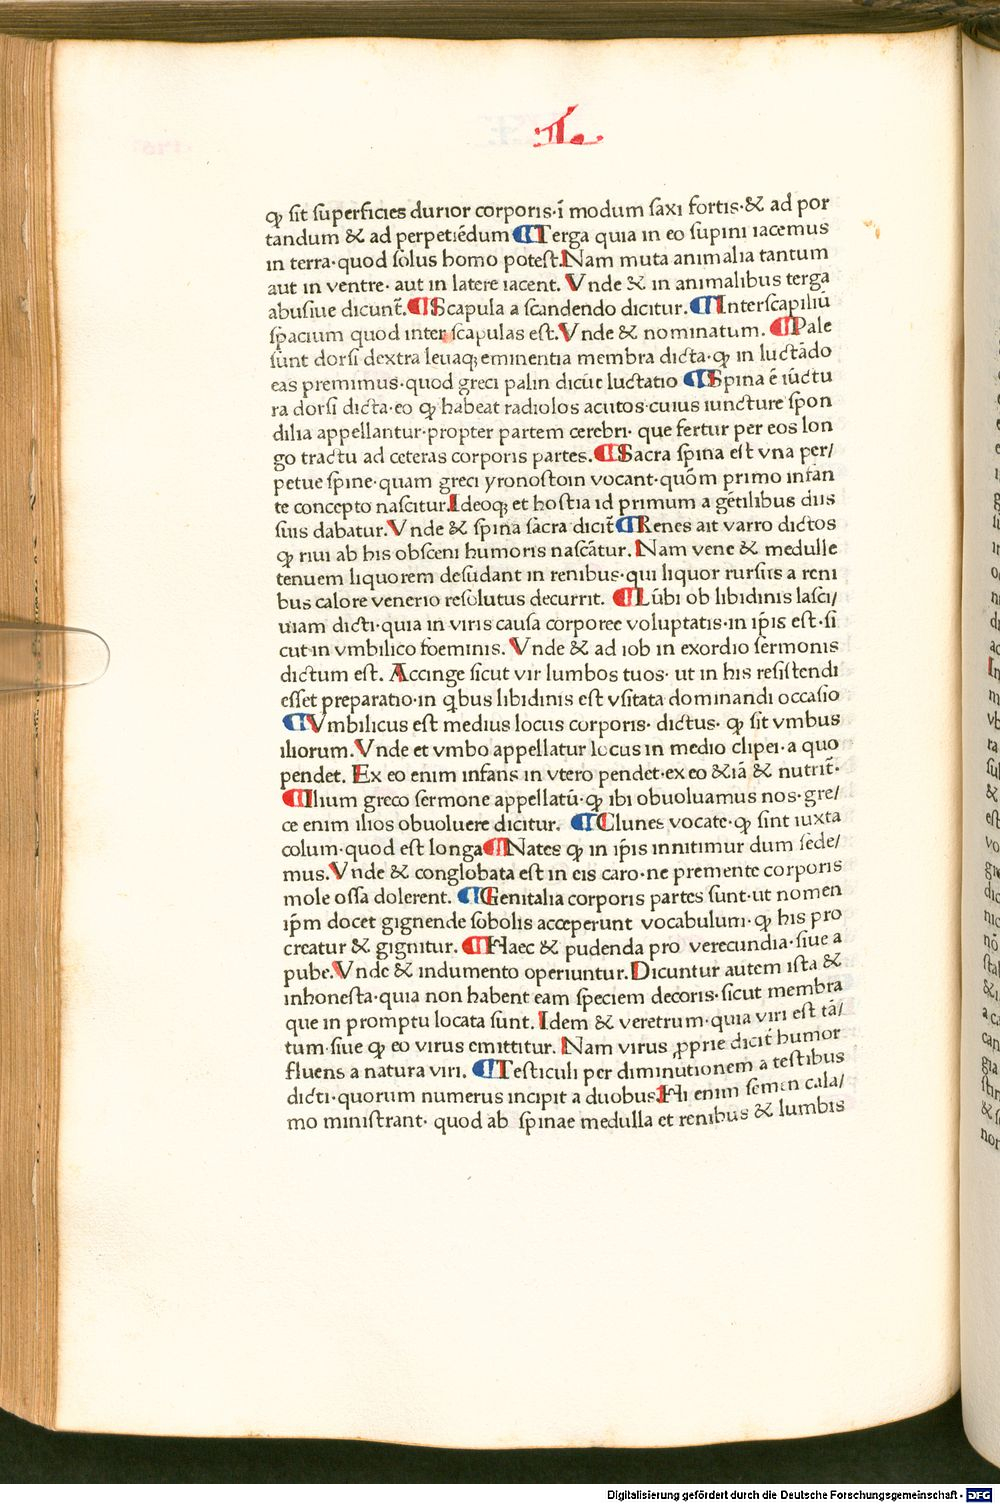 ·L·
ꝙ sit superficies durior corporis·ī modum saxi fortis·& ad por
tandum & ad perpetiēdum ¶Terga quia in eo supini iacemus
in terra·quod solus homo potest.Nam muta animalia tantum
aut in ventre· aut in latere iacent. Vnde & in animalibus terga
abusiue dicunt̄.¶Scapula a scandendo dicitur.¶Interscapiliū
spacium quod inter scapulas est.Vnde & nominatum. ¶Pale
sunt dorsi dextra leuaqꝫ eminentia membra dicta·ꝙ in luctādo
eas premimus·quod greci palin dicūt luctatio ¶Spina ē iūctu
ra dorsi dicta·eo ꝙ habeat radiolos acutos·cuius iuncture spon
dilia appellantur·propter partem cerebri· que fertur per eos lon
go tractu ad ceteras corporis partes.¶Sacra spina est vna per/
petue spine·quam greci yronostoin vocant·quōm primo infan
te concepto nascitur.Ideoqꝫ et hostia id primum a gētilibus diis
suis dabatur.Vnde & spina sacra dicit̄ ¶Renes ait varro dictos
ꝙ riui ab his obsceni humoris nascātur. Nam vene & medulle
tenuem liquorem desudant in renibus·qui liquor rursus a reni
bus calore venerio resolutus decurrit. ¶Lūbi ob libidinis lasci/
uiam dicti·quia in viris causa corporee voluptatis·in ip̄is est·si
cut in vmbilico foeminis. Vnde & ad iob in exordio sermonis
dictum est. Accinge sicut vir lumbos tuos· ut in his resistendi
esset preparatio·in q̄bus libidinis est vsitata dominandi occasio
¶Vmbilicus est medius locus corporis· dictus· ꝙ sit vmbus
iliorum.Vnde et vmbo appellatur locus in medio clipei·a quo
pendet. Ex eo enim infans in vtero pendet·ex eo &iā & nutrit̄·
¶Ilium greco sermone appellatū·ꝙ ibi obuoluamus nos·gre/
ce enim ilios obuoluere dicitur. ¶Clunes vocate·ꝙ sint iuxta
colum·quod est longa¶Nates ꝙ in ip̄is innitimur dum sede/
mus.Vnde & conglobata est in eis caro·ne premente corporis
mole ossa dolerent. ¶Genitalia corporis partes sunt·ut nomen
ip̄m docet gignende sobolis acceperunt vocabulum·ꝙ his pro
creatur & gignitur. ¶Haec & pudenda pro verecundia·siue a
pube.Vnde & indumento operiuntur.Dicuntur autem ista &
inhonesta·quia non habent eam speciem decoris·sicut membra
que in promptu locata sunt. Idem & veretrum·quia viri est tā/
tum·siue ꝙ eo virus emittitur. Nam virus ꝓprie dicit̄ humor
fluens a natura viri. ¶Testiculi per diminutionem a testibus
dicti·quorum numerus incipit a duobus.Hi enim semen cala/
mo ministrant· quod ab spinae medulla et renibus & lumbis
Digitalisierung gefördert durch die Deutsche Forschungsgemeinschaft - DFG